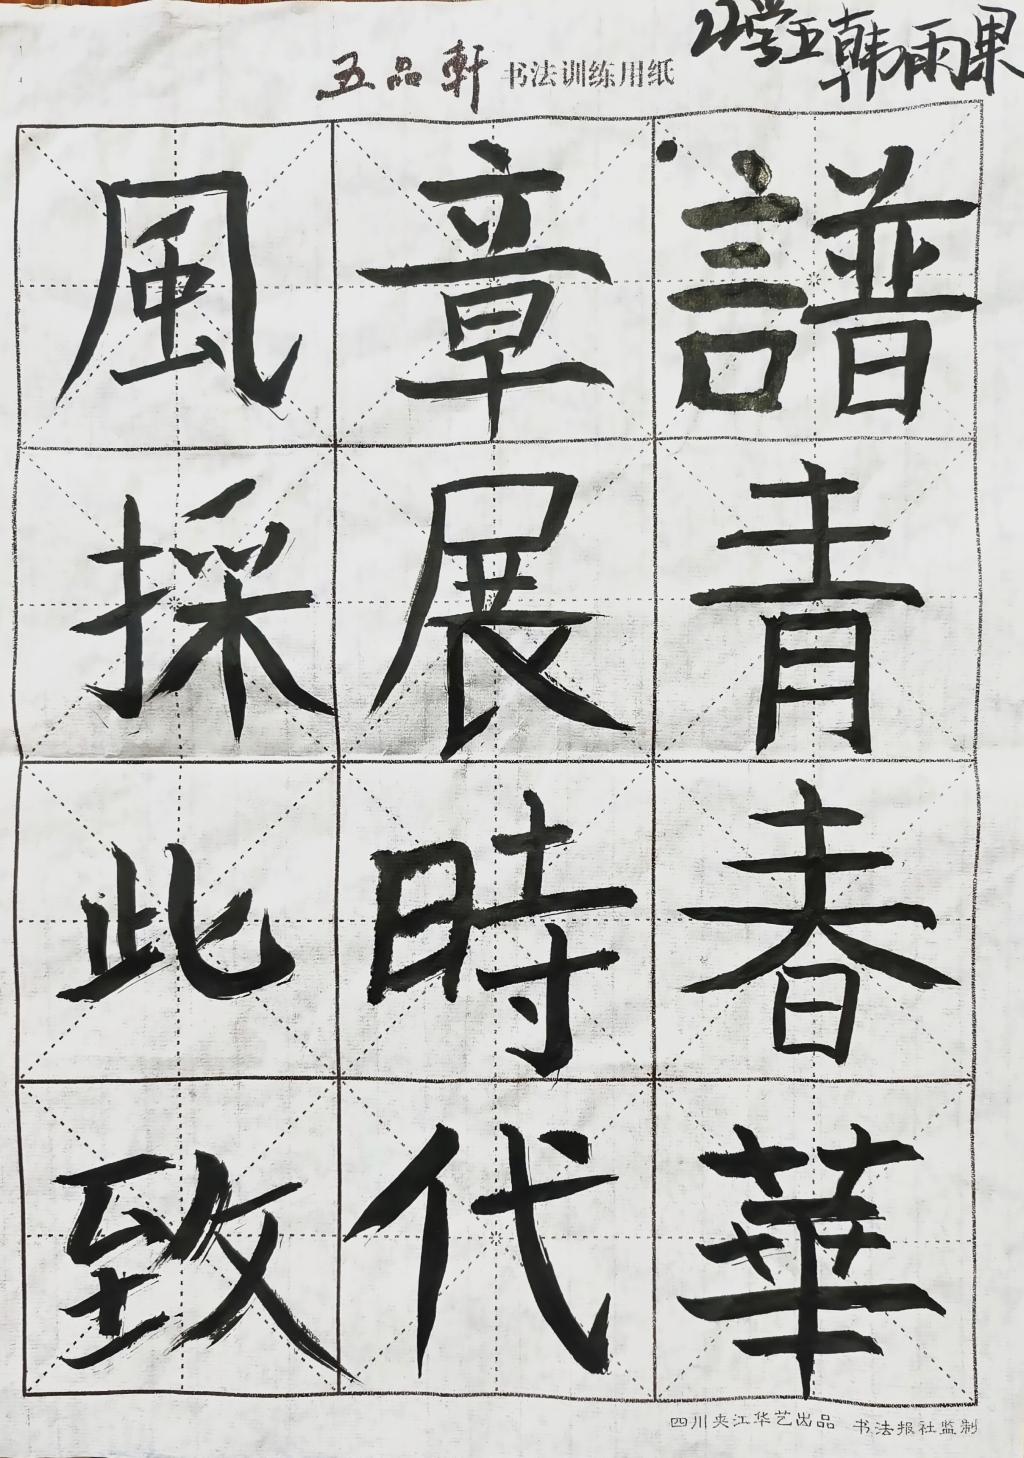 22学五韩雨果
五品轩 书法训练用纸
譜青春華
章展時代
風採此致
四川夹江华艺出品 书法报社监制